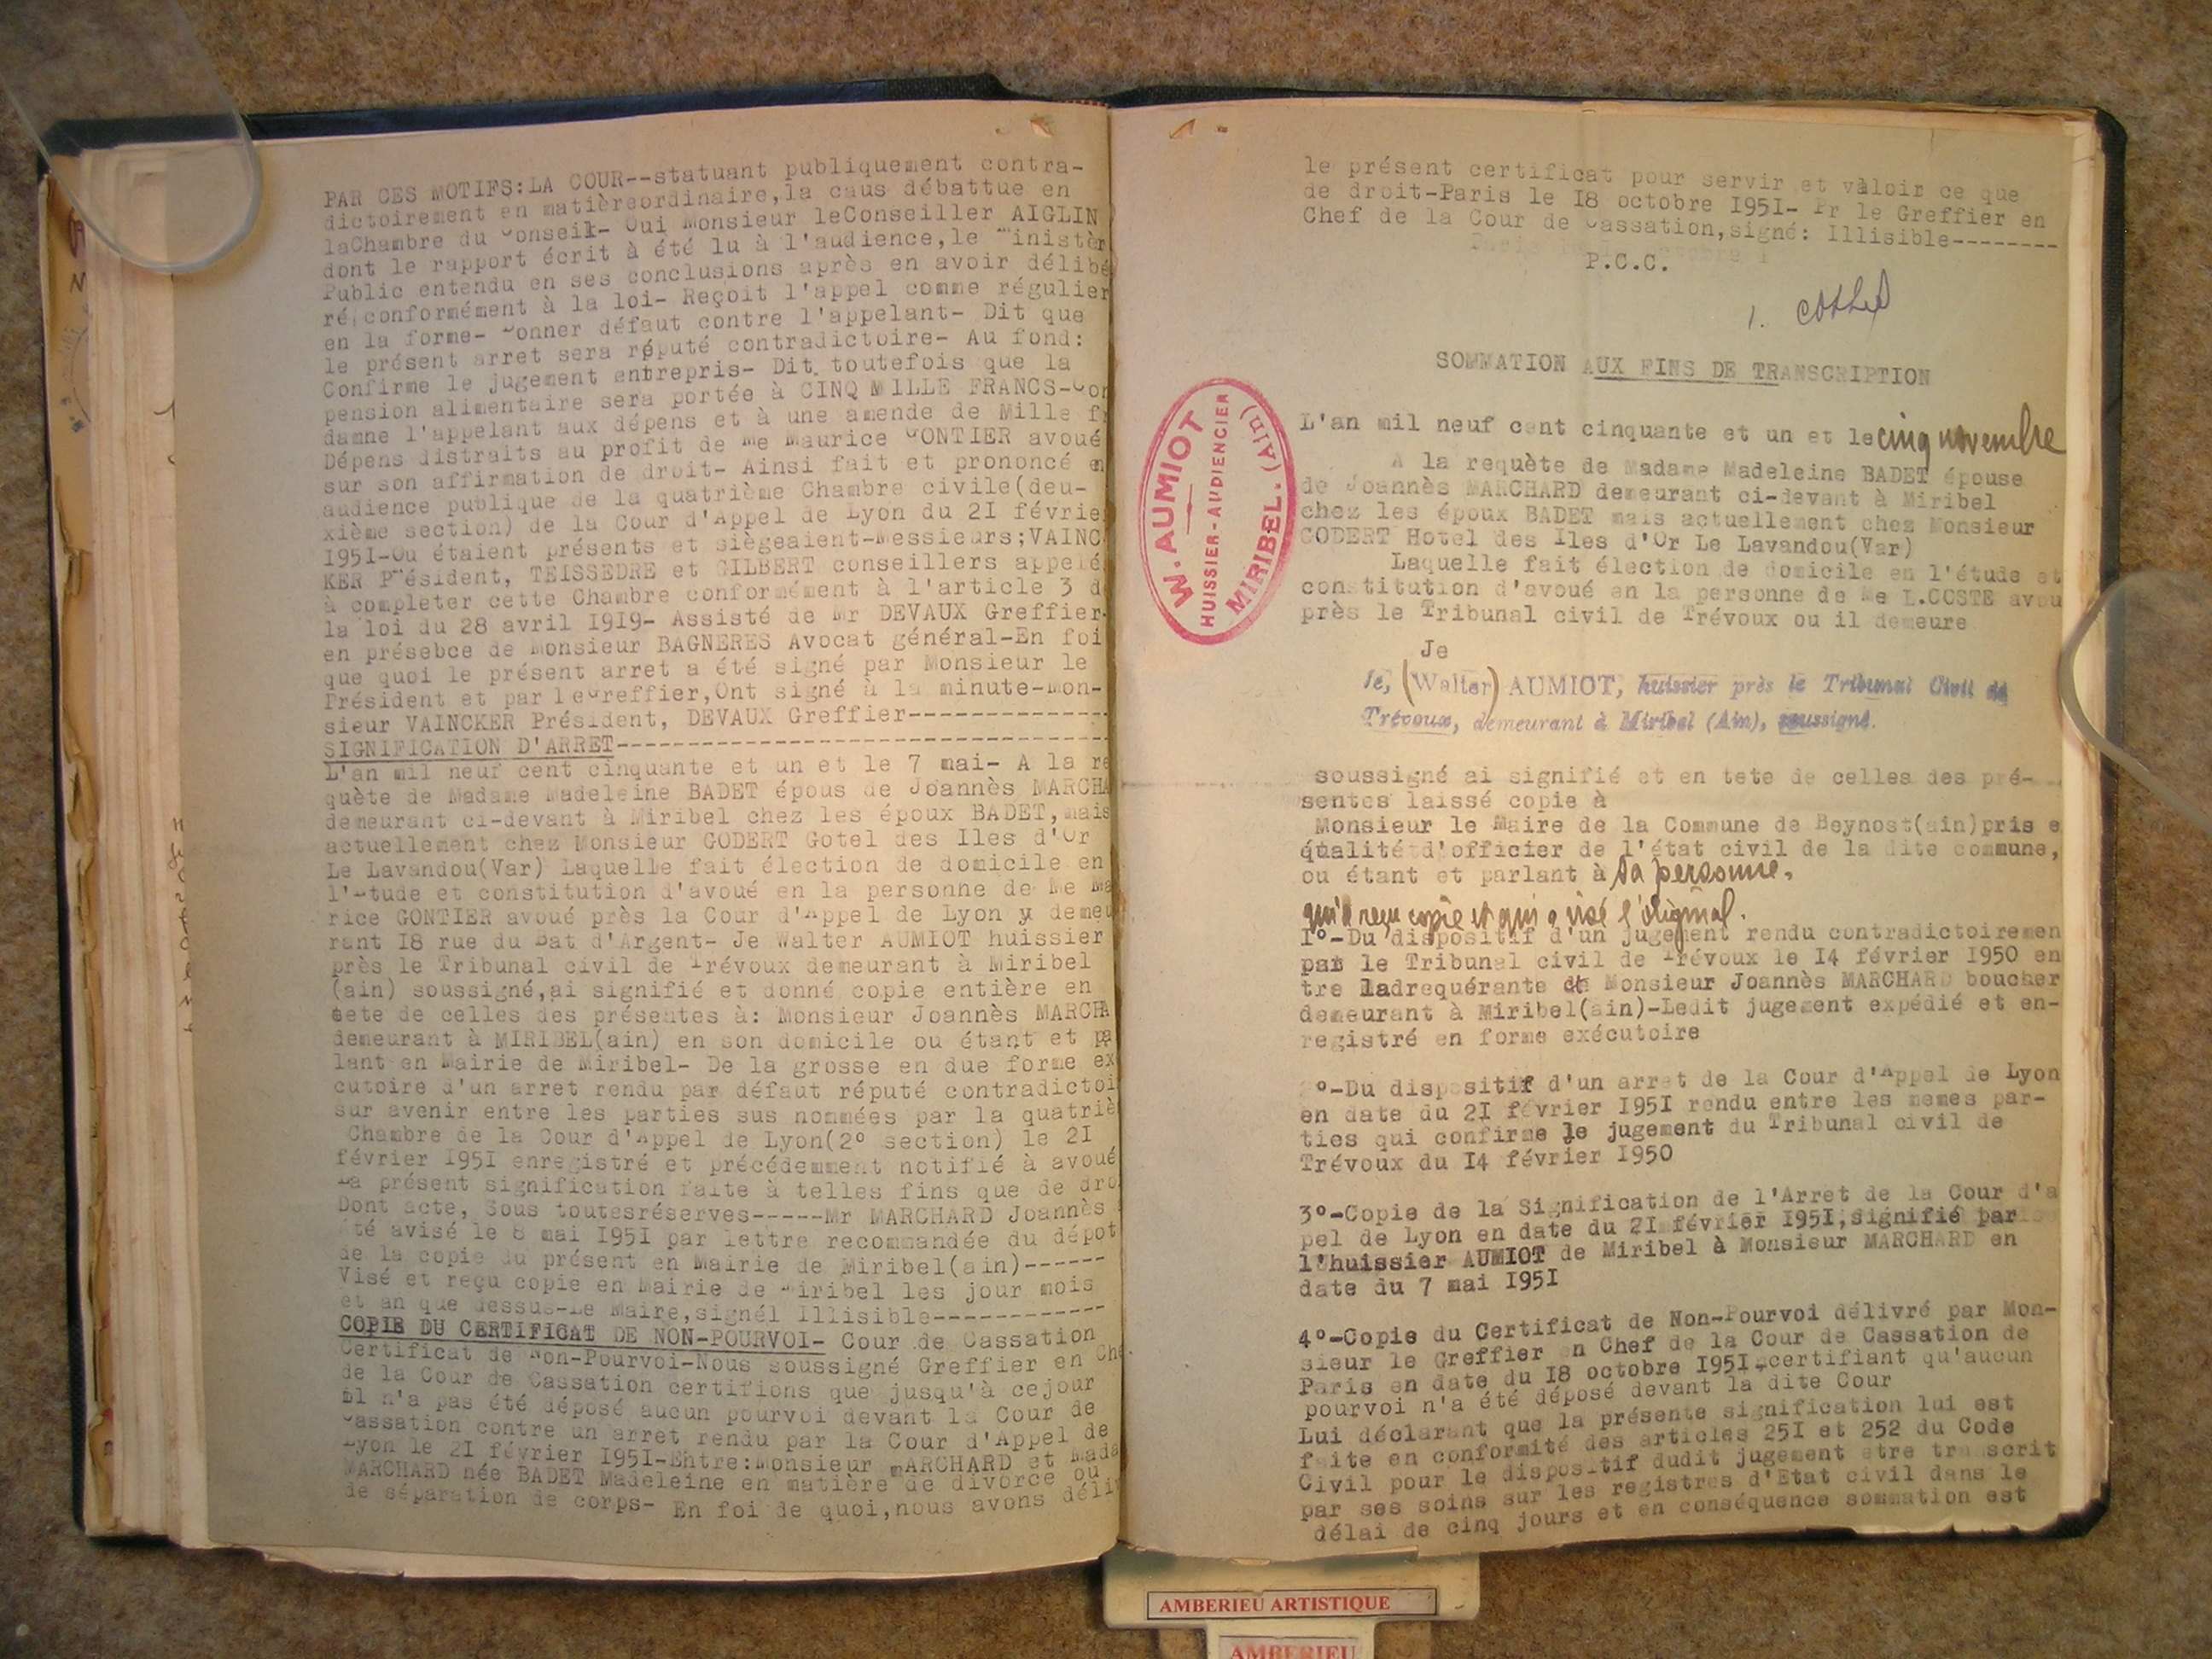 PAR CES MOTIFS:LA COUR--statuant publiquement contra-
dictoirement en matièreordinaire,la caus débattue en
laChambre du Conseil- Oui Monsieur leConseiller AIGLIN
dont le rapport écrit à été lu à l'audience,le Ministèr
Public entendu en ses conclusions après en avoir délibé
ré conformément à la loi- Reçoit l'appel comme régulier
en la forme- Donner défaut contre l'appelant- Dit que
le présent arret sera réputé contradictoire- Au fond:
Confirme le jugement entrepris- Dit toutefois que la
pension alimentaire sera portée à CINQ MILLE FRANCS-Con
damne l'appelant aux dépens et à une amende de Mille f
Dépens distraits au profit de Me Maurice GONTIER avoué
sur son affirmation de droit- Ainsi fait et prononcé en
audience publique de la quatrième Chambre civile(deu-
xième section) de la Cour d'Appel de Lyon du 2I févrie
I95I-Ou étaient présents et siègeaient-Messieurs;VAINC
KER Président, TEISSEDRE et GILBERT conseillers appelé
à completer cette Chambre conformément à l'article 3 d
la loi du 28 avril I9I9- Assisté de Mr DEVAUX Greffier-
en présebce de Monsieur BAGNERES Avocat général-En foi
que quoi le présent arret a été signé par Monsieur le
Président et par leGreffier,Ont signé à la minute-Mon-
sieur VAINCKER Président, DEVAUX Greffier--------------
SIGNIFICATION D'ARRET-----------------------------------
L'an mil neuf cent cinquante et un et le 7 mai- A la re
quète de Madame Madeleine BADET épous de Joannès MARCHA
demeurant ci-devant à Miribel chez les époux BADET,mais
actuellement chez Monsieur GODERT Gotel des Iles d'Or
Le Lavandou(Var) Laquelle fait élection de domicile en
l'Etude et constitution d'avoué en la personne de Me Ma
rice GONTIER avoué près la Cour d'Appel de Lyon y demeu
rant I8 rue du Bat d'Argent- Je Walter AUMIOT huissier
près le Tribunal civil de Trévoux demeurant à Miribel
(ain) soussigné,ai signifié et donné copie entière en
tete de celles des présentes à: Monsieur Joannès MARCHA
demeurant à MIRIBEL(ain) en son domicile ou étant et pa
lant en Mairie de Miribel- De la grosse en due forme ex
cutoire d'un arret rendu par défaut réputé contradictoi
sur avenir entre les parties sus nommées par la quatriè
Chambre de la Cour d'Appel de Lyon(2° section) le 2I
février I95I enregistré et précédemment notifié à avoué
La présent signification faite à telles fins que de dro
Dont acte, Sous toutesréserves-----Mr MARCHARD Joannès
été avisé le 8 mai I95I par lettre recommandée du dépot
de la copie du présent en Mairie de Miribel(ain)------
Visé et reçu copie en Mairie de Miribel les jour mois
et an que dessus-Le Maire,signél Illisible------------
COPIE DU CERTIFICAT DE NON-POURVOI- Cour de Cassation
Certificat de Non-Pourvoi-Nous soussigné Greffier en Che
de la Cour de Cassation certifions que jusqu'à cejour
il n'a pas été déposé aucun pourvoi devant la Cour de
Cassation contre un arret rendu par la Cour d'Appel de
Lyon le 2I février I95I-Entre:Monsieur mARCHARD et Mada
MARCHARD née BADET Madeleine en matière de divorce ou
de séparation de corps- En foi de quoi,nous avons déliv
le présent certificat pour servir et vàloir ce que
de droit-Paris le I8 octobre I95I- Pr le Greffier en
Chef de la Cour de Cassation,signé: Illisible--------
P.C.C.
SOMMATION AUX FINS DE TRANSCRIPTION
W. AUMIOT
HUISSIER-AUDIENCIER
MIRIBEL.(Ain)
L'an mil neuf cent cinquante et un et le cinq novembre
A la requète de Madame Madeleine BADET épouse
de Joannès MARCHARD demeurant ci-devant à Miribel
chez les époux BADET mais actuellement chez Monsieur
GODERT Hotel des Iles d'Or Le Lavandou(Var)
Laquelle fait élection de domicile en l'étude et
constitution d'avoué en la personne de Me L.COSTE avou
près le Tribunal civil de Trévoux ou il demeure
Je
Je, (Walter) AUMIOT, huissier près le Tribunal Civil de
Trévoux, demeurant à Miribel (Ain), soussigné.
soussigné ai signifié et en tete de celles des pré-
sentes laissé copie à
Monsieur le Maire de la Commune de Beynost(ain)pris e
qualité d'officier de l'état civil de la dite commune,
ou étant et parlant à sa personne.
qui a reçu copie et qui a visé l'original.
I°-Du dispositif d'un jugement rendu contradictoiremen
par le Tribunal civil de Trévoux le I4 février I950 en
tre ladrequérante et Monsieur Joannès MARCHARD boucher
demeurant à Miribel(ain)-Ledit jugement expédié et en-
registré en forme exécutoire
°-Du dispositif d'un arret de la Cour d'Appel de Lyon
en date du 2I février I95I rendu entre les memes par-
ties qui confirme le jugement du Tribunal civil de
Trévoux du I4 février I950
3°-Copie de la Signification de l'Arret de la Cour d'a
pel de Lyon en date du 2I février I95I,signifié par
l'huissier AUMIOT de Miribel à Monsieur MARCHARD en
date du 7 mai I95I
4°-Copie du Certificat de Non-Pourvoi délivré par Mon-
sieur le Greffier en Chef de la Cour de Cassation de
Paris en date du I8 octobre I95I,certifiant qu'aucun
pourvoi n'a été déposé devant la dite Cour
Lui déclarant que la présente signification lui est
faite en conformité des articles 25I et 252 du Code
Civil pour le dispositif dudit jugement etre transcrit
par ses soins sur les registres d'Etat civil dans le
délai de cinq jours et en conséquence sommation est
AMBERIEU ARTISTIQUE
AMBERIEU